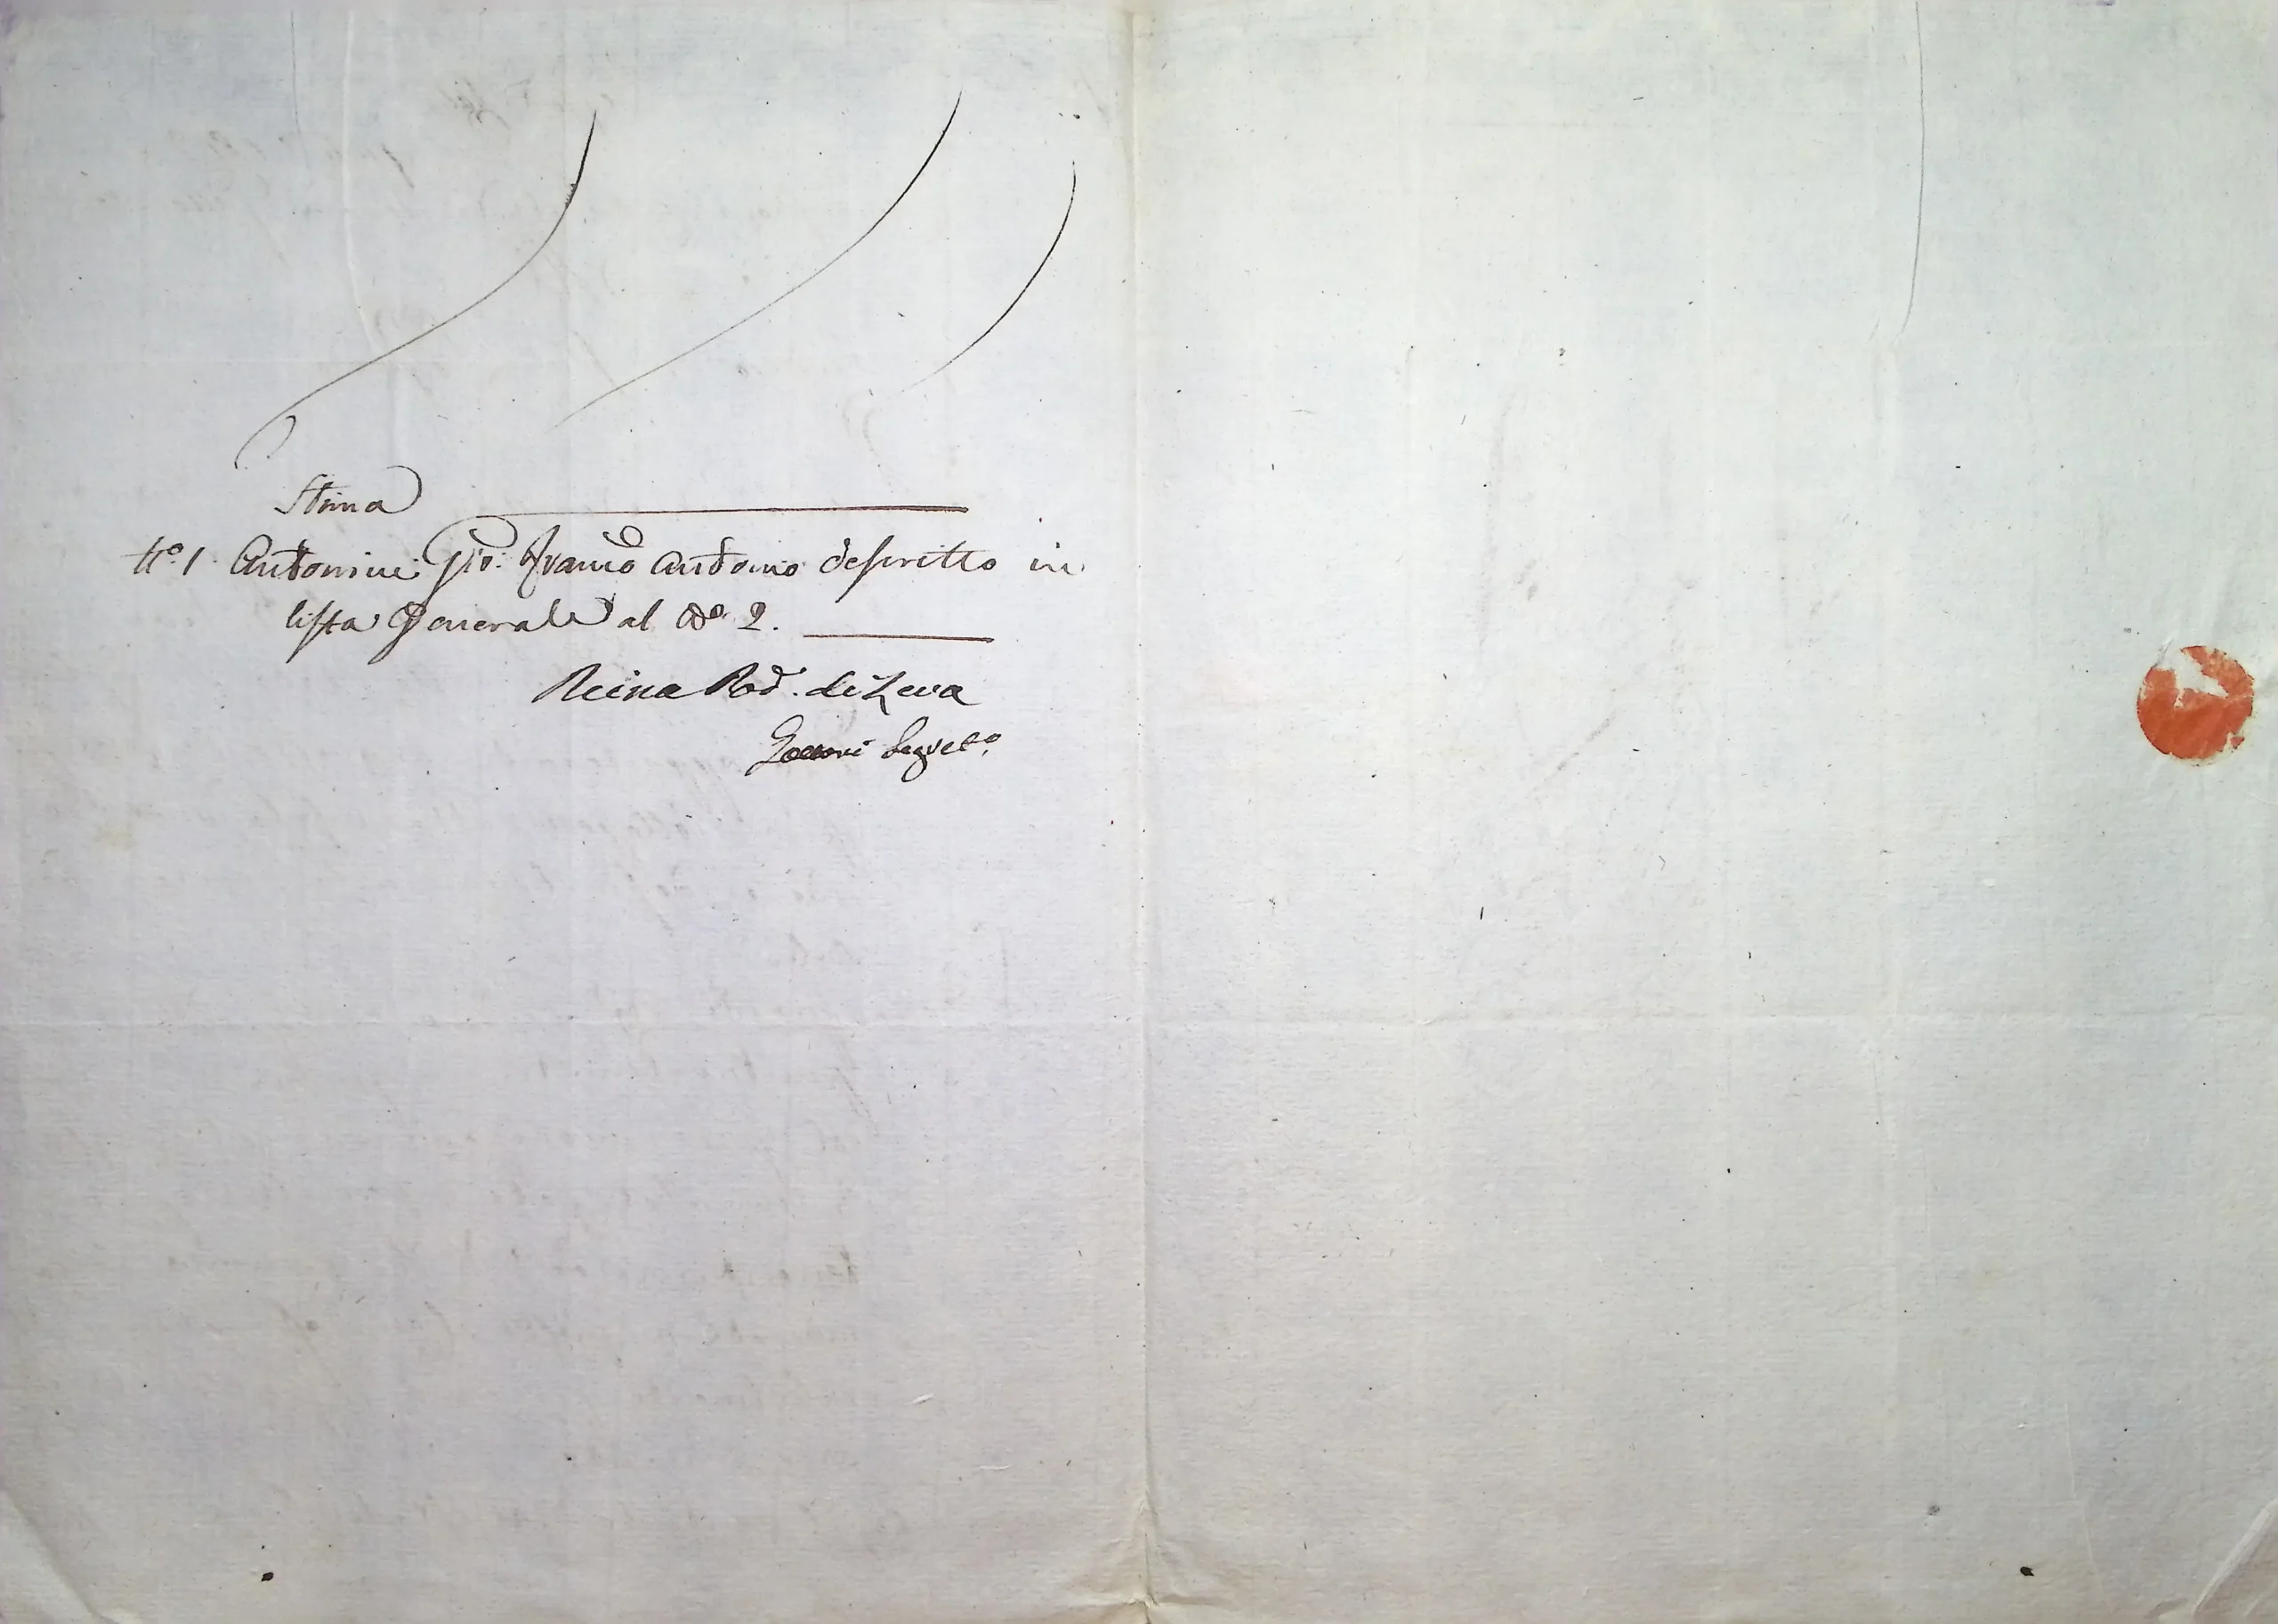 Stima
N.º 1. Antonini Gio: Franco Antonio descritto in
lista Generale al Nº 2.
Reina Rod. de Leva
Segret.º